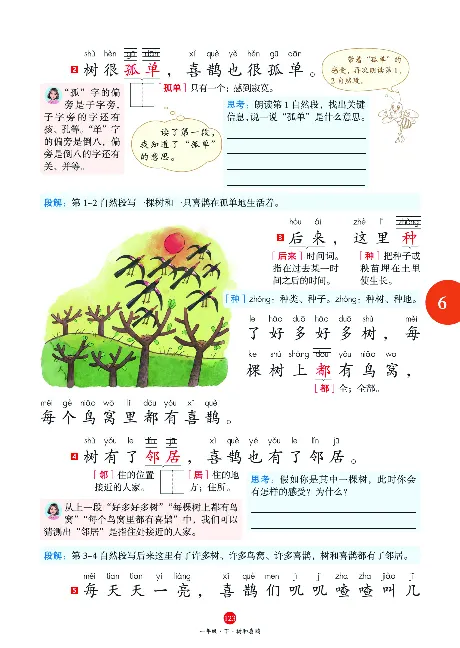 shù hěn gū dān xǐ què yě hěn gū dān
2 树很孤单，喜鹊也很孤单。
带着“孤单”的
感受，再次朗读第1、
2自然段。
[孤单] 只有一个；感到寂寞。
“孤”字的偏
旁是子字旁，
子字旁的字还有
孩、孔等。“单”字
的偏旁是倒八，偏
旁是倒八的字还有
关、并等。
读了第一段，
我知道了“孤单”
的意思。
思考：朗读第1自然段，找出关键
信息，说一说“孤单”是什么意思。
段解：第1-2自然段写一棵树和一只喜鹊在孤单地生活着。
hòu lái zhè lǐ zhòng
3 后来，这里种
[后来] 时间词。
指在过去某一时
间之后的时间。
[种] 把种子或
秧苗埋在土里
使生长。
[种] zhǒng：种类、种子。zhòng：种树、种地。
6
le hǎo duō hǎo duō shù měi
了好多好多树，每
kē shù shàng dōu yǒu niǎo wō
棵树上都有鸟窝，
[都] 全；全部。
měi gè niǎo wō lǐ dōu yǒu xǐ què
每个鸟窝里都有喜鹊。
shù yǒu le lín jū xǐ què yě yǒu le lín jū
4 树有了邻居，喜鹊也有了邻居。
[邻] 住的位置
接近的人家。
[居] 住的地
方；住所。
思考：假如你是其中一棵树，此时你会
有怎样的感受？为什么？
从上一段“好多好多树”“每棵树上都有鸟
窝”“每个鸟窝里都有喜鹊”中，我们可以
猜测出“邻居”是指住处接近的人家。
段解：第3-4自然段写后来这里有了许多树、许多鸟窝、许多喜鹊，树和喜鹊都有了邻居。
měi tiān tiān yí liàng xǐ què men jī jī zhā zhā jiào jǐ
5 每天天一亮，喜鹊们叽叽喳喳叫几
123
一年级·下·树和喜鹊